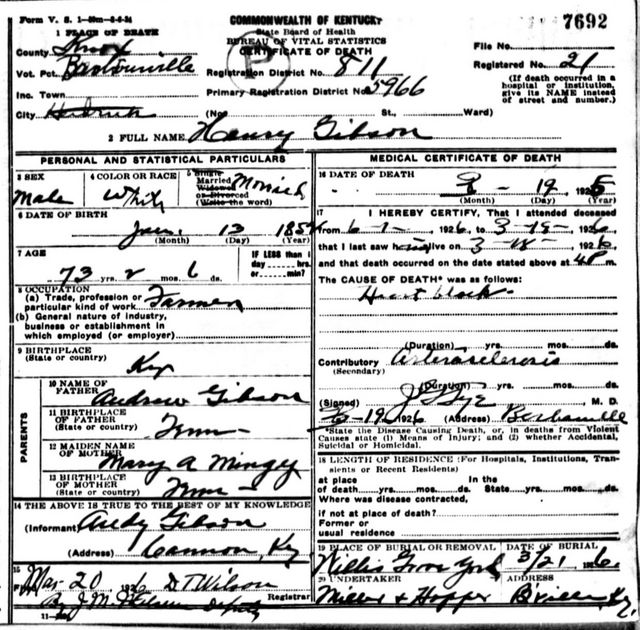 Form V. S. 1-50m-5-6-24
COMMONWEALTH OF KENTUCKY
State Board of Health
BUREAU OF VITAL STATISTICS
CERTIFICATE OF DEATH
7692
1 PLACE OF DEATH
County Knox
File No.
Vot. Pct. Barbourville
Registration District No. 811
Registered No. 21
Inc. Town
Primary Registration District No. 5966
(If death occurred in a hospital or institution, give its NAME instead of street and number.)
City
(No. St., Ward)
2 FULL NAME Henry Gibson
PERSONAL AND STATISTICAL PARTICULARS
3 SEX
Male
4 COLOR OR RACE
White
5 Single
Married
Widowed
or Divorced
(Write the word)
Married
6 DATE OF BIRTH
Jan. 13 185
(Month) (Day) (Year)
7 AGE
73 yrs. 2 mos. 6 ds.
IF LESS than 1
day hrs.
or min?
8 OCCUPATION
(a) Trade, profession or
particular kind of work Farmer
(b) General nature of industry,
business or establishment in
which employed (or employer)
9 BIRTHPLACE
(State or country)
Ky
PARENTS
10 NAME OF
FATHER
Andrew Gibson
11 BIRTHPLACE
OF FATHER
(State or country)
Tenn
12 MAIDEN NAME
OF MOTHER
Mary A
13 BIRTHPLACE
OF MOTHER
(State or country)
Tenn
14 THE ABOVE IS TRUE TO THE BEST OF MY KNOWLEDGE
(Informant) Andy Gibson
(Address) Cannon, Ky
15
Mar 20 1926 D T Wilson
Registrar
By J. M. Deputy
MEDICAL CERTIFICATE OF DEATH
16 DATE OF DEATH
19, 192
(Month) (Day) (Year)
17 I HEREBY CERTIFY, That I attended deceased
from 6-1-, 1926, to 3-19-, 1926
that I last saw him alive on 3-18-, 1926,
and that death occurred on the date stated above at 4P m.
The CAUSE OF DEATH* was as follows:
Heart block
(Duration) yrs. mos. ds.
Contributory Arteriosclerosis
(Secondary)
(Duration) yrs. mos. ds.
(Signed) M. D.
3-19, 1926 (Address) Barbourville
*State the Disease Causing Death, or, in deaths from Violent
Causes state (1) Means of Injury; and (2) whether Accidental,
Suicidal or Homicidal.
18 LENGTH OF RESIDENCE (For Hospitals, Institutions, Tran-
sients or Recent Residents)
at place In the
of death yrs. mos. ds. State yrs. mos. ds.
Where was disease contracted,
if not at place of death?
Former or
usual residence
19 PLACE OF BURIAL OR REMOVAL
Willis Grove Yard
DATE OF BURIAL
3/21, 1926.
20 UNDERTAKER
Miller & Hopper
ADDRESS
B'ville, Ky.